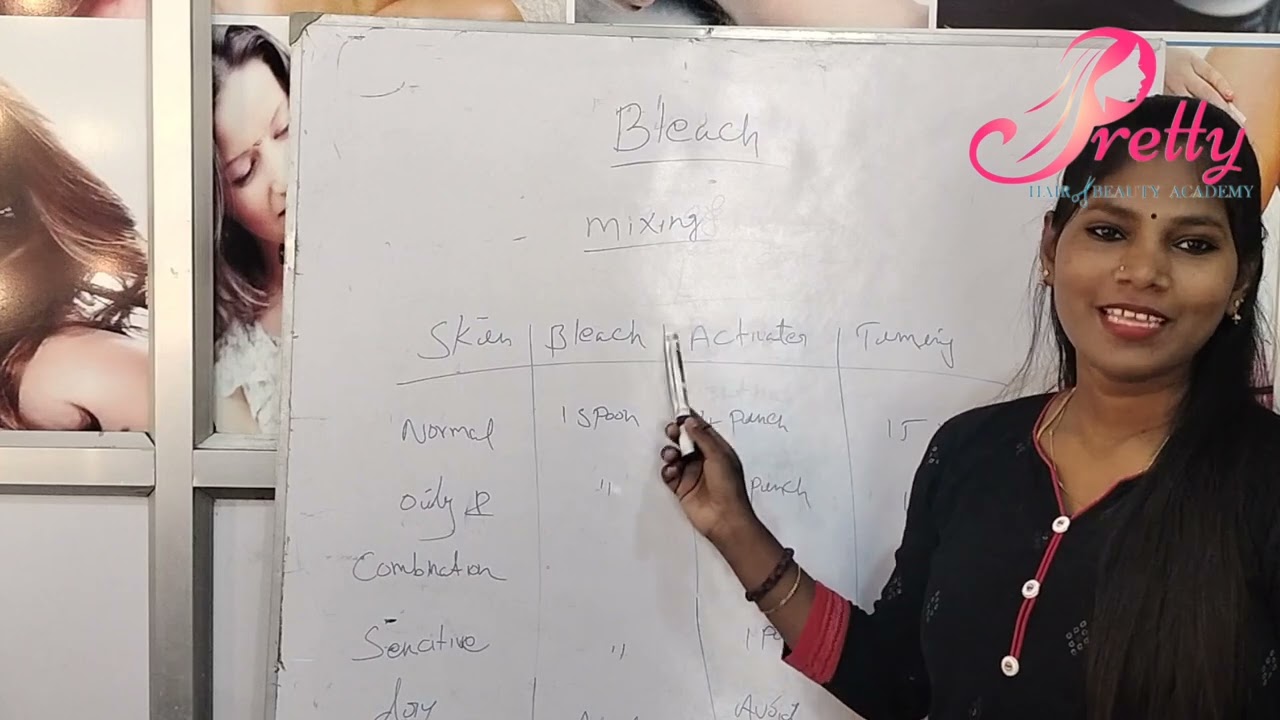 Pretty
HAIR & BEAUTY ACADEMY
Bleach
mixing
Skien | Bleach | Activater | Timing
Normal 1 spoon punch 15
Oily &
" punch
Combnation
Sencitive " 1
dory Avoid